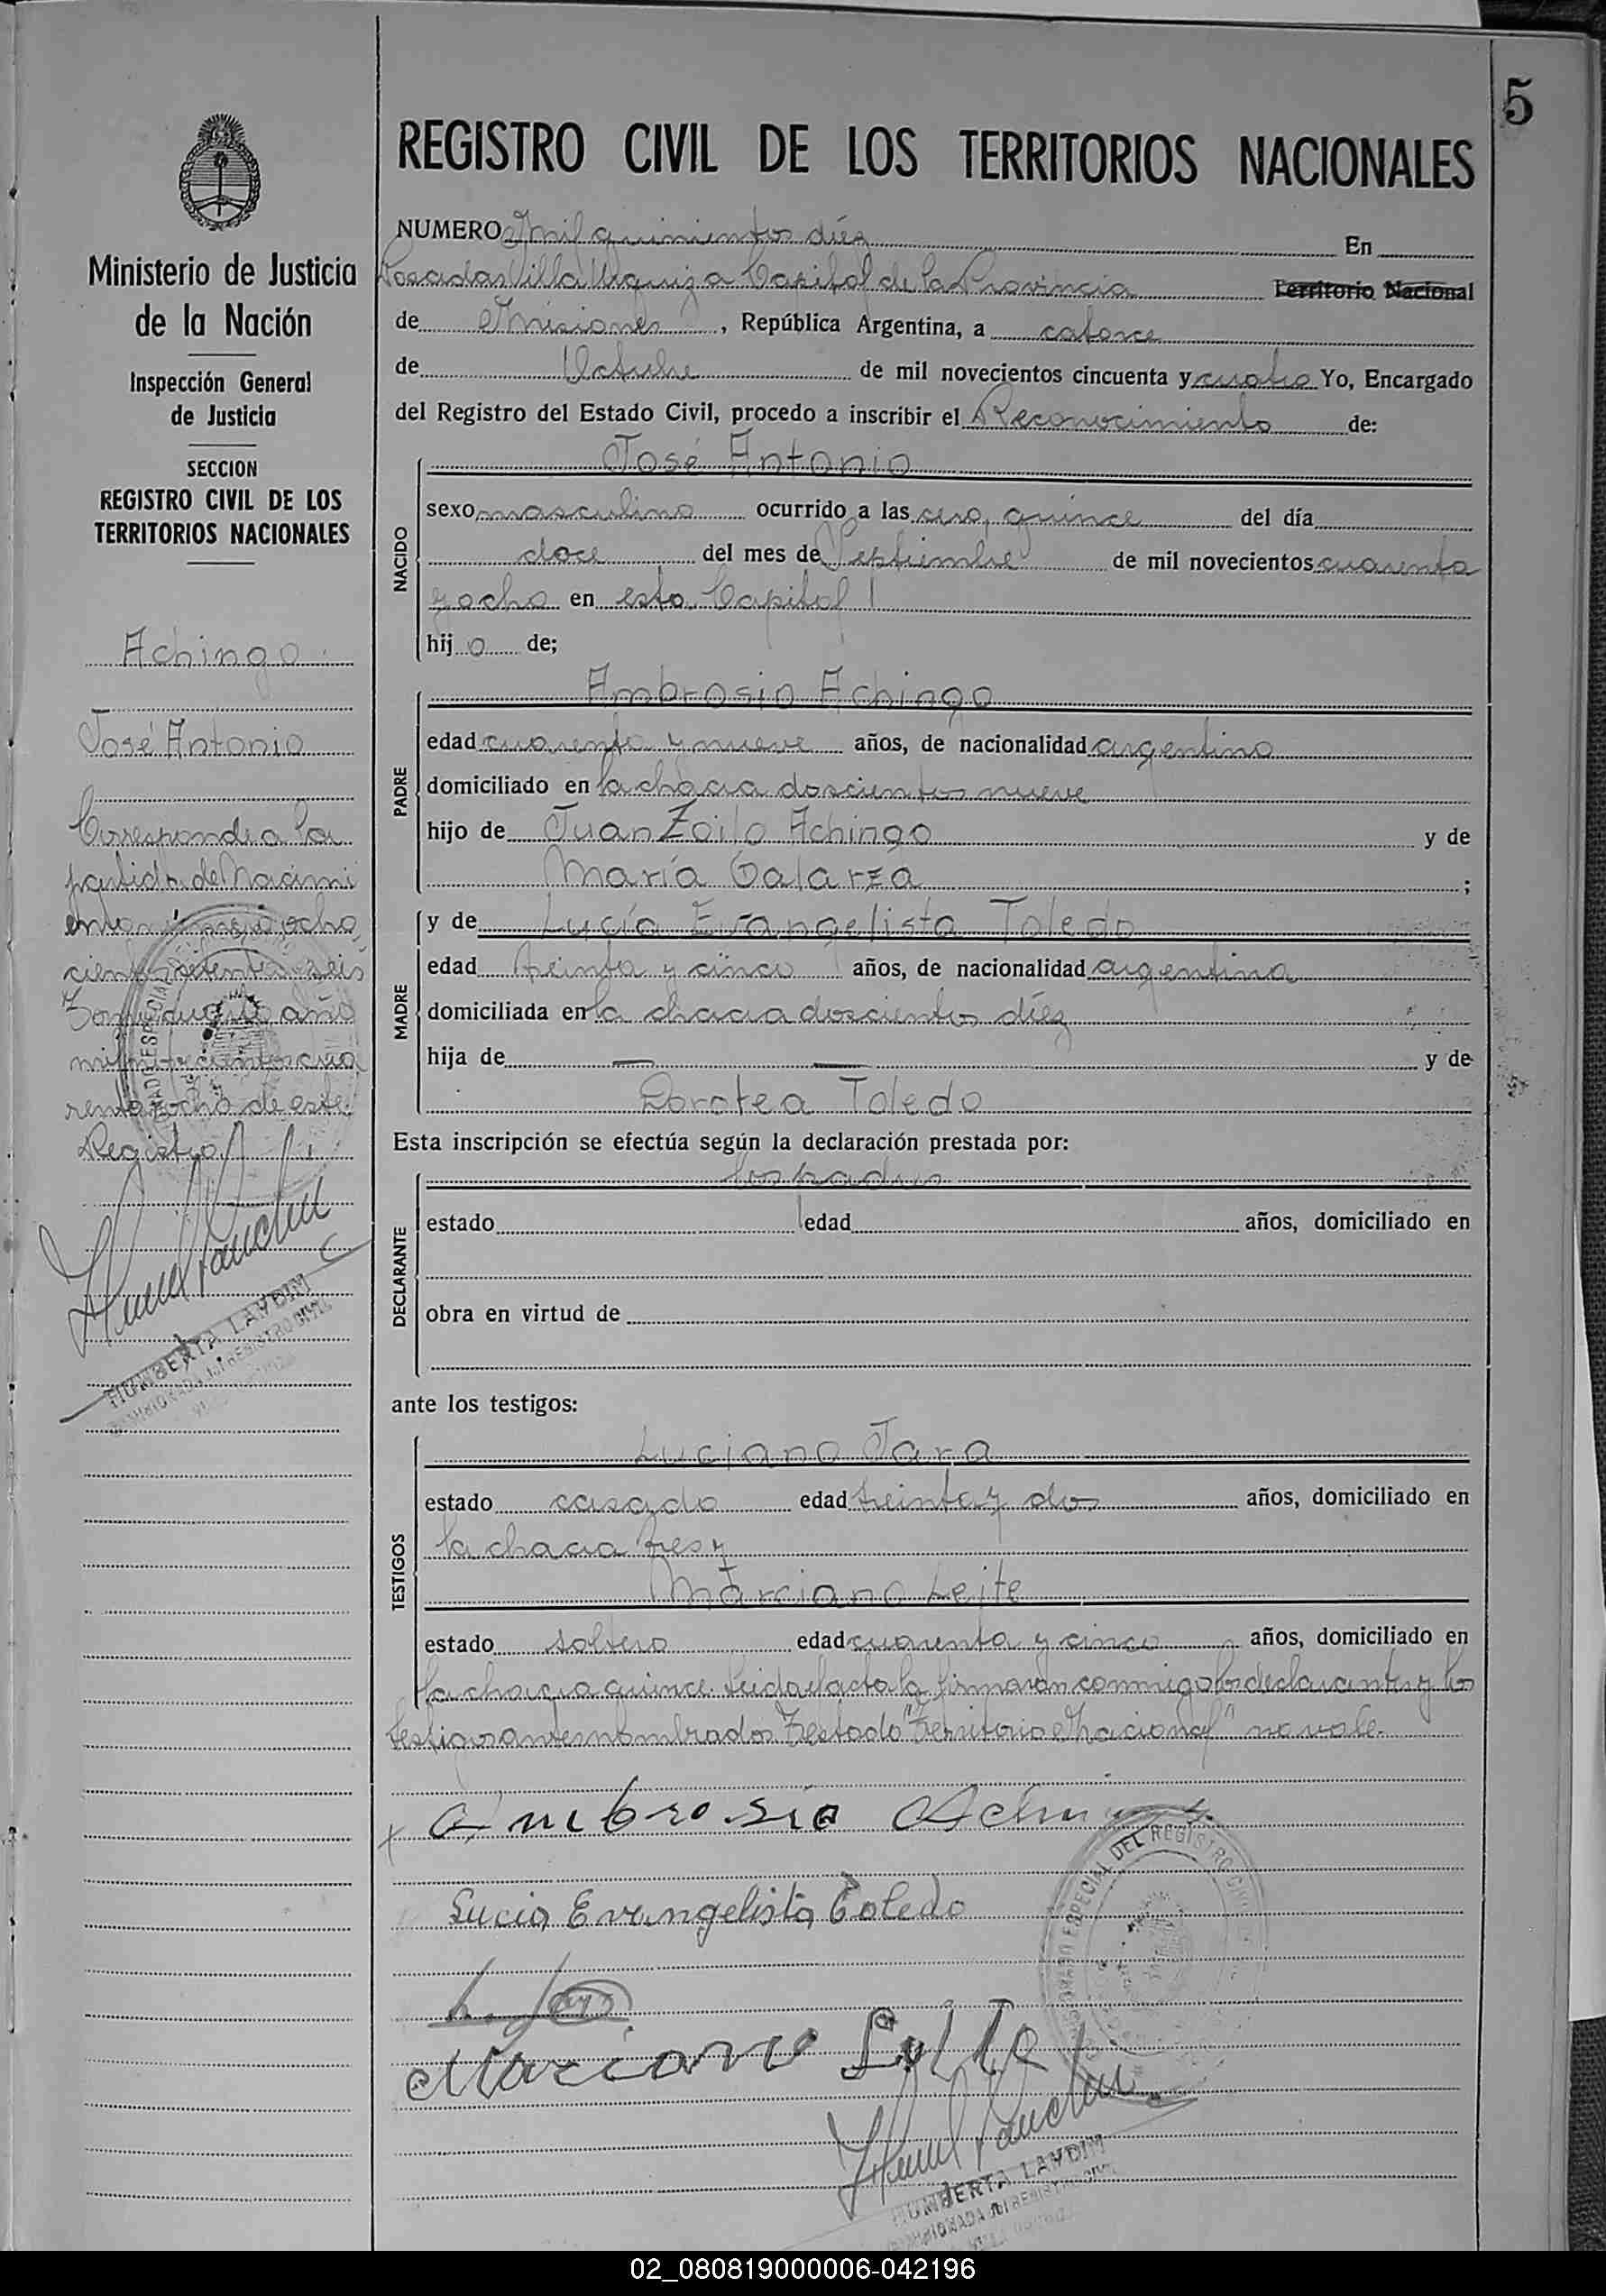 5
REGISTRO CIVIL DE LOS TERRITORIOS NACIONALES
Ministerio de Justicia
de la Nación
Inspección General
de Justicia
SECCION
REGISTRO CIVIL DE LOS
TERRITORIOS NACIONALES
Achingo
José Antonio
Corresponde a la
partida de Nacimi
ento número ocho
cientos setenta y seis
Tomo cuarto año
mil novecientos cua
renta y ocho de este
Registro
HUMBERTA LAYDIN
NUMERO Mil quinientos diéz En
Posadas Villa Urquiza Capital de la Provincia Territorio Nacional
de Misiones, República Argentina, a catorce
de Octubre de mil novecientos cincuenta y cuatro Yo, Encargado
del Registro del Estado Civil, procedo a inscribir el Reconocimiento de:
NACIDO
José Antonio
sexo masculino ocurrido a las cero, quince del día
doce del mes de Septiembre de mil novecientos cuarenta
y ocho en esta Capital
hijo de;
PADRE
Ambrosio Achingo
edad cuarenta y nueve años, de nacionalidad argentino
domiciliado en la chacra doscientos nueve
hijo de Juan Zoilo Achingo y de
María Galarza ;
MADRE
y de Lucía Evangelista Toledo
edad treinta y cinco años, de nacionalidad argentina
domiciliada en la chacra doscientos diéz
hija de — — y de
Dorotea Toledo
Esta inscripción se efectúa según la declaración prestada por:
DECLARANTE
los padres
estado edad años, domiciliado en
obra en virtud de
ante los testigos:
TESTIGOS
Luciano Jara
estado casado edad treinta y dos años, domiciliado en
la chacra tres y
Marciano Leite
estado soltero edad cuarenta y cinco años, domiciliado en
la chacra quince. Leida el acta la firmaron conmigo los declarantes y los
testigos antes nombrados. Testado "Territorio Nacional" no vale.
Ambrosio Achingo
Lucia Evangelista Toledo
L. Jara
Marciano Leite
ESPECIAL DEL REGISTRO CIVIL
HUMBERTA LAYDIN
02_080819000006-042196